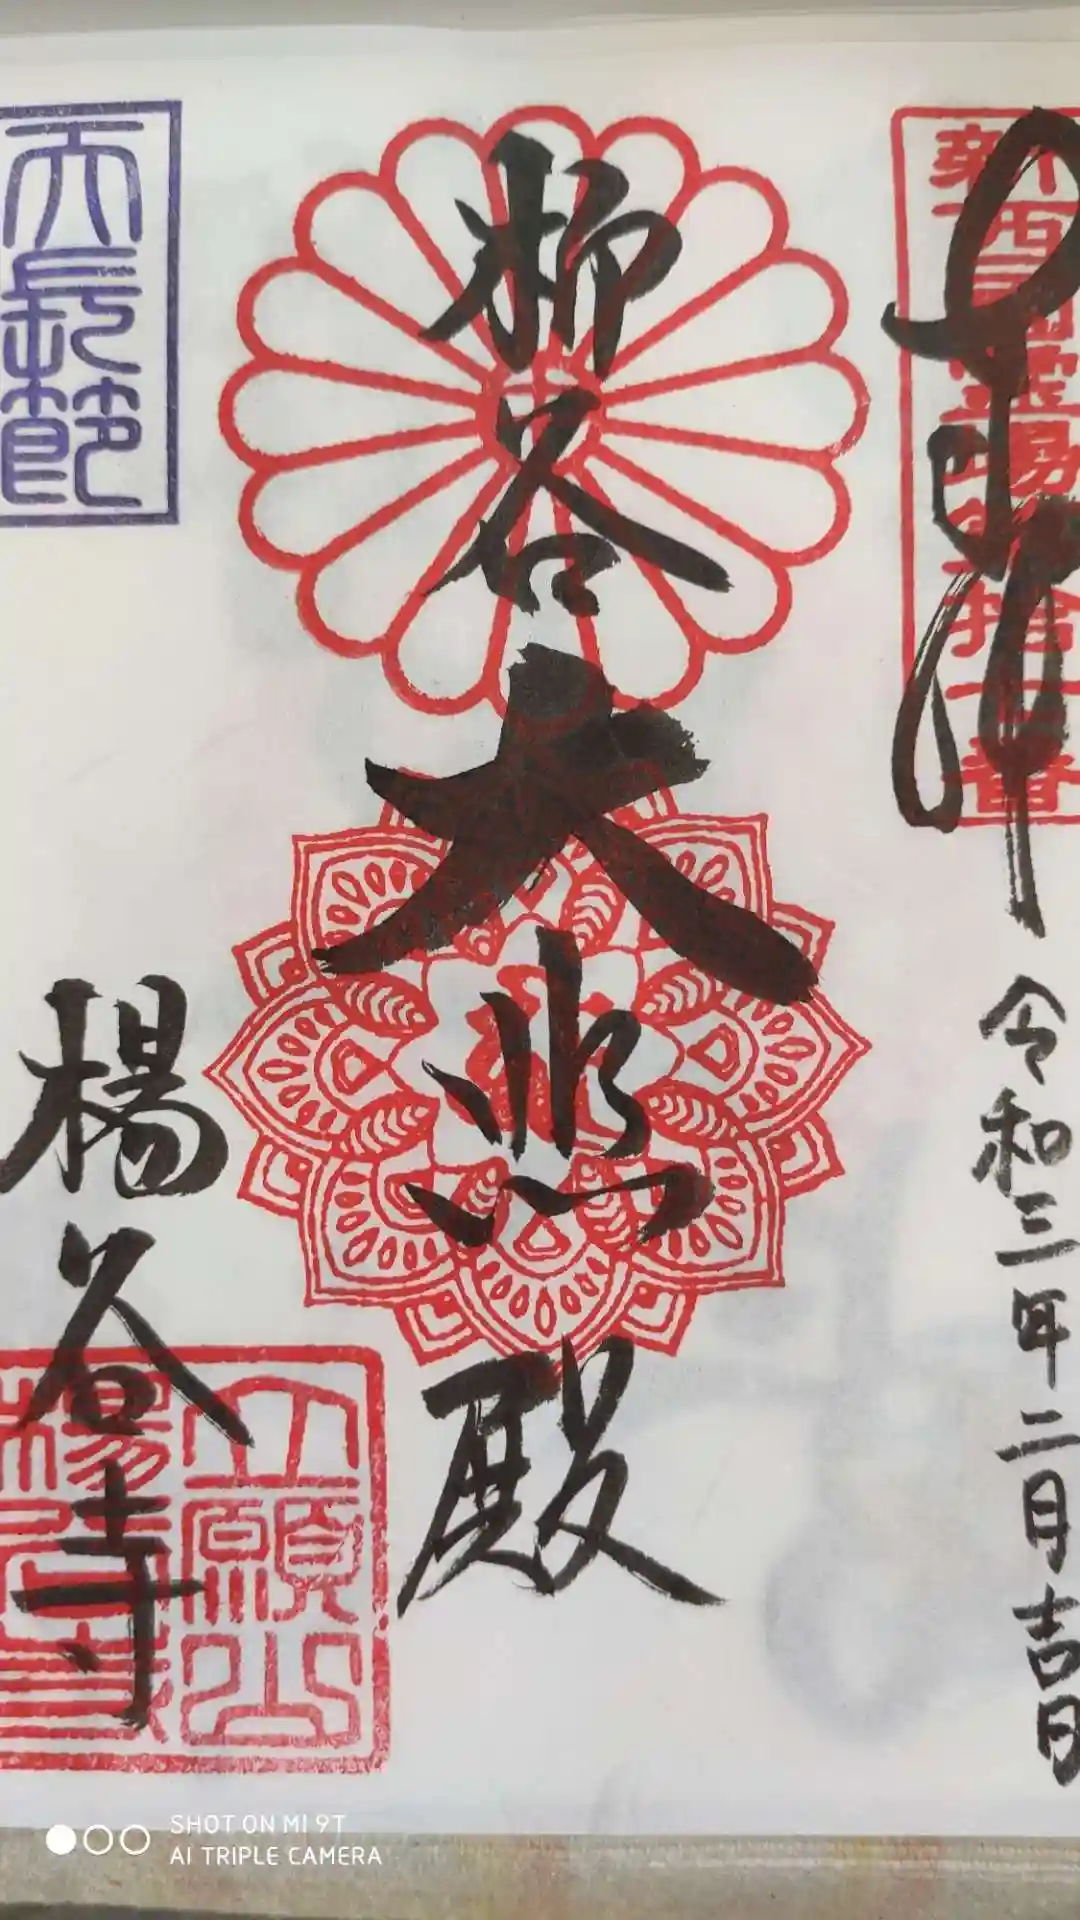 奉拝
令和三年二月吉日
新西国霊場第拾七番
柳谷大悲殿
天長節
楊谷寺
立願山
楊谷寺
SHOT ON MI 9T
AI TRIPLE CAMERA